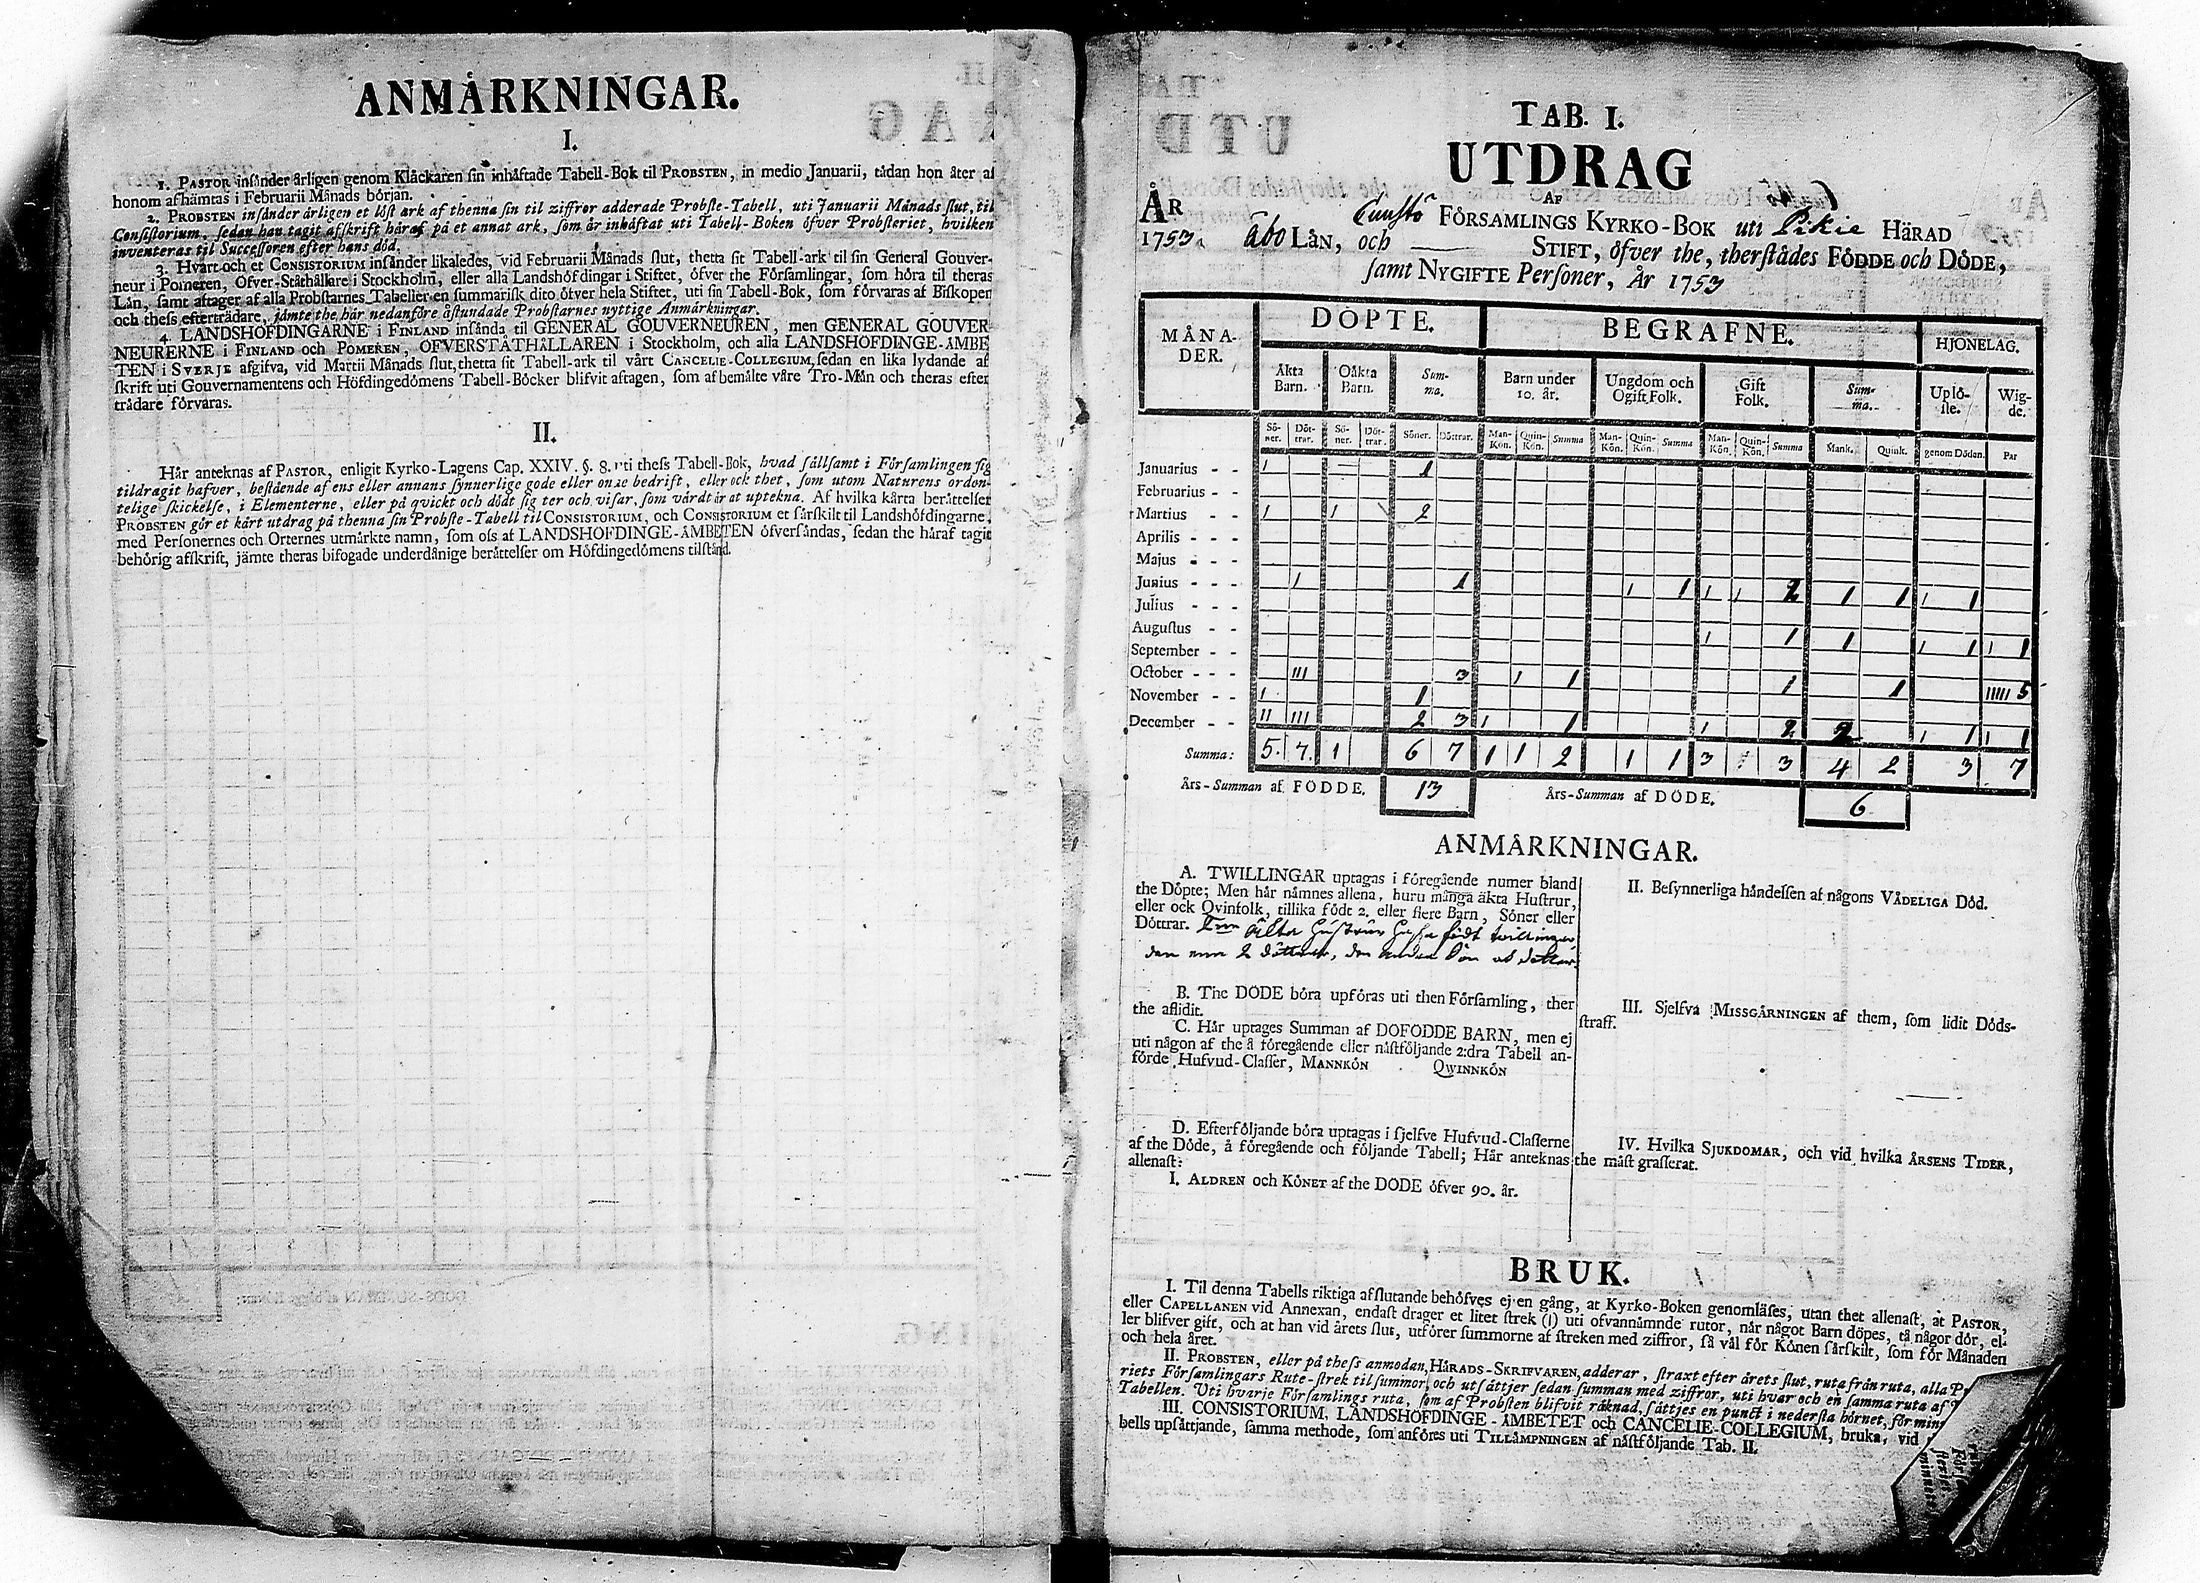 ANMÄRKNINGAR.
I.
1. PASTOR insänder årligen genom Klåckaren sin inhäftade Tabell-Bok til PROBSTEN, in medio Januarii, tådan hon åter af
honom afhämtas i Februarii Månads början.
2. PROBSTEN insänder årligen et löst ark af thenna sin til ziffror adderade Probste-Tabell, uti Januarii Månads slut, til
Consistorium, sedan han tagit afskrift häraf på et annat ark, som är inhäftat uti Tabell-Boken öfver Probsteriet, hvilken
inventeras til Successoren efter hans död.
3. Hvart och et CONSISTORIUM insänder likaledes, vid Februarii Månads slut, thetta sit Tabell-ark til sin General Gouver-
neur i Pomeren, Öfver-Ståthållare i Stockholm, eller alla Landshöfdingar i Stiftet, öfver the Församlingar, som höra til theras
Län, samt aftager af alla Probstarnes Tabeller en summarisk dito öfver hela Stiftet, uti sin Tabell-Bok, som förvaras af Biskopen
och thess efterträdare, jämte the här nedanföre åstundade Probstarnes nyttige Anmärkningar.
4. LANDSHÖFDINGARNE i FINLAND insända til GENERAL GOUVERNEUREN, men GENERAL GOUVER
NEURERNE i FINLAND och POMEREN, ÖFVERSTÅTHÅLLAREN i Stockholm, och alla LANDSHÖFDINGE-ÄMBE
TEN i SVERJE afgifva, vid Martii Månads slut, thetta sit Tabell-ark til vårt CANCELIE-COLLEGIUM, sedan en lika lydande af
skrift uti Gouvernamentens och Höfdingedömens Tabell-Böcker blifvit aftagen, som af bemälte våre Tro-Män och theras efter
trädare förvaras.
II.
Här anteknas af PASTOR, enligit Kyrko-Lagens Cap. XXIV. §. 8. uti thess Tabell-Bok, hvad sällsamt i Församlingen sig
tildragit hafver, bestående af ens eller annans synnerlige gode eller onde bedrift, eller ock thet, som utom Naturens orden-
telige skickelse, i Elementerne, eller på quickt och dödt sig ter och visar, som värdt är at uptekna. Af hvilka kårta berättelser
PROBSTEN gör et kårt utdrag på thenna sin Probste-Tabell til CONSISTORIUM, och CONSISTORIUM et särskilt til Landshöfdingarne,
med Personernes och Orternes utmärkte namn, som oss af LANDSHÖFDINGE-ÄMBETEN öfversändas, sedan the häraf tagit
behörig afskrift, jämte theras bifogade underdånige berättelser om Höfdingedömens tilstånd.
TAB. I.
UTDRAG
AF
ÅR Cuustö FÖRSAMLINGS KYRKO-BOK uti Pikie HÄRAD
1753. Åbo LÄN, och STIFT, öfver the, therstädes FÖDDE och DÖDE,
samt NYGIFTE Personer, År 1753
MÅNA-
DER. DÖPTE. BEGRAFNE. HJONELAG.
Äkta
Barn. Oäkta
Barn. Sum-
ma. Barn under
10. år. Ungdom och
Ogift Folk. Gift
Folk. Sum-
ma. Uplö-
ste. Wig-
de.
Sö-
ner. Döt-
trar. Sö-
ner. Döt-
trar. Söner. Döttrar. Man-
Kön. Quin-
Kön. Summa Man-
Kön. Quin-
Kön. Summa Man-
Kön. Quin-
Kön. Summa Mank. Quink. genom Döden. Par
Januarius - - ı 1
Februarius - -
Martius - - ı ı 2
Aprilis - - -
Majus - - -
Junius - - - ı 1 ı 1 ı ı 2 1 1 ı 1
Julius - - -
Augustus - - ı 1 1
September - - ı 1 ı 1
October - - - ııı 3 ı 1
November - - ı 1 1 1 ııııı 5
December - - ıı ııı 2 3 ı 1 ı 2 2 ı 1 ı 1
Summa: 5. 7. 1 6 7 1 1 2 1 1 3 3 4 2 3 7
Års-Summan af FÖDDE. 13 Års-Summan af DÖDE. 6
ANMÄRKNINGAR.
A. TWILLINGAR uptagas i föregående numer bland
the Döpte; Men här nämnes allena, huru många äkta Hustrur,
eller ock Qvinfolk, tillika födt 2. eller flere Barn, Söner eller
Döttrar. äkta hustrur födt twillingar,
den ena 2 döttrar, den andra Son ok dotter.
B. The DÖDE böra upföras uti then Församling, ther
the aflidit.
C. Här uptages Summan af DÖFÖDDE BARN, men ej
uti någon af the å föregående eller nästföljande 2:dra Tabell an-
förde Hufvud-Classer, MANNKÖN QWINNKÖN
D. Efterföljande böra uptagas i sjelfve Hufvud-Classerne
af the Döde, å föregående och följande Tabell; Här anteknas
allenast:
I. ÅLDREN och KÖNET af the DÖDE öfver 90. år.
II. Besynnerliga händelsen af någons VÅDELIGA Död.
III. Sjelfva MISSGÄRNINGEN af them, som lidit Döds-
straff.
IV. Hvilka SJUKDOMAR, och vid hvilka ÅRSENS TIDER,
the mäst grasserat.
BRUK.
I. Til denna Tabells riktiga afslutande behöfves ej en gång, at Kyrko-Boken genomläses, utan thet allenast, at PASTOR,
eller CAPELLANEN vid Annexan, endast drager et litet strek (ı) uti ofvannämnde rutor, när något Barn döpes, tå någor dör, el-
ler blifver gift, och at han vid årets slut, utförer summorne af streken med ziffror, så väl för Könen särskilt, som för Månaden
och hela året.
II. PROBSTEN, eller på thess anmodan, HÄRADS-SKRIFVAREN, adderar, straxt efter årets slut, ruta från ruta, alla
riets Församlingars Rute-strek til summor, och utsättjer sedan summan med ziffror, uti hvar och en samma ruta af
Tabellen. Uti hvarje Församlings ruta, som af Probsten blifvit räknad, sättjes en punct i nedersta hörnet, för
III. CONSISTORIUM, LANDSHÖFDINGE-ÄMBETET och CANCELIE-COLLEGIUM, bruka, vid
bells upsättjande, samma methode, som anföres uti TILLÄMPNINGEN af nästföljande Tab. II.